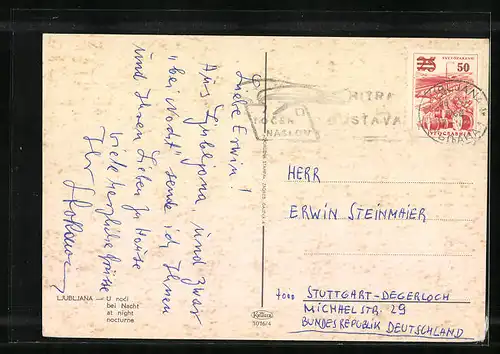 Liebe Erwin!
Aus Ljubljana, und zwar
"bei Nacht" sende ich Ihnen
und Ihren Lieben zu Hause
viele herzliche Grüsse
Ihr
LJUBLJANA — U noći
bei Nacht
at night
nocturne
5076/4
HITRA
DOSTAVA
TOČEN
NASLOV
25
50
JUGOSLAVIJA
LJUBLJANA
HERR
ERWIN STEINMAIER
7000 STUTTGART-DEGERLOCH
MICHAELSTR. 29
BUNDESREPUBLIK DEUTSCHLAND